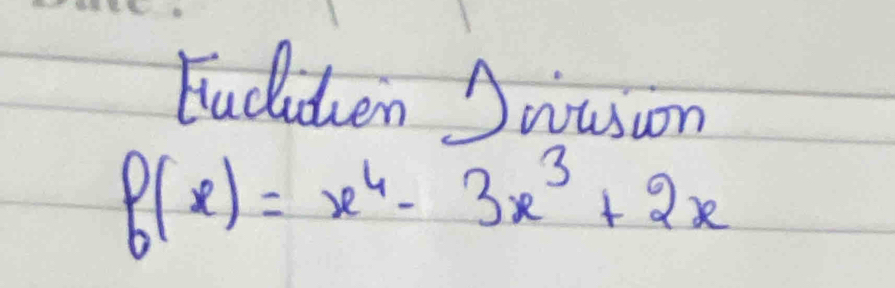 Euclidien Division
f(x) = x⁴ - 3x³ + 2x